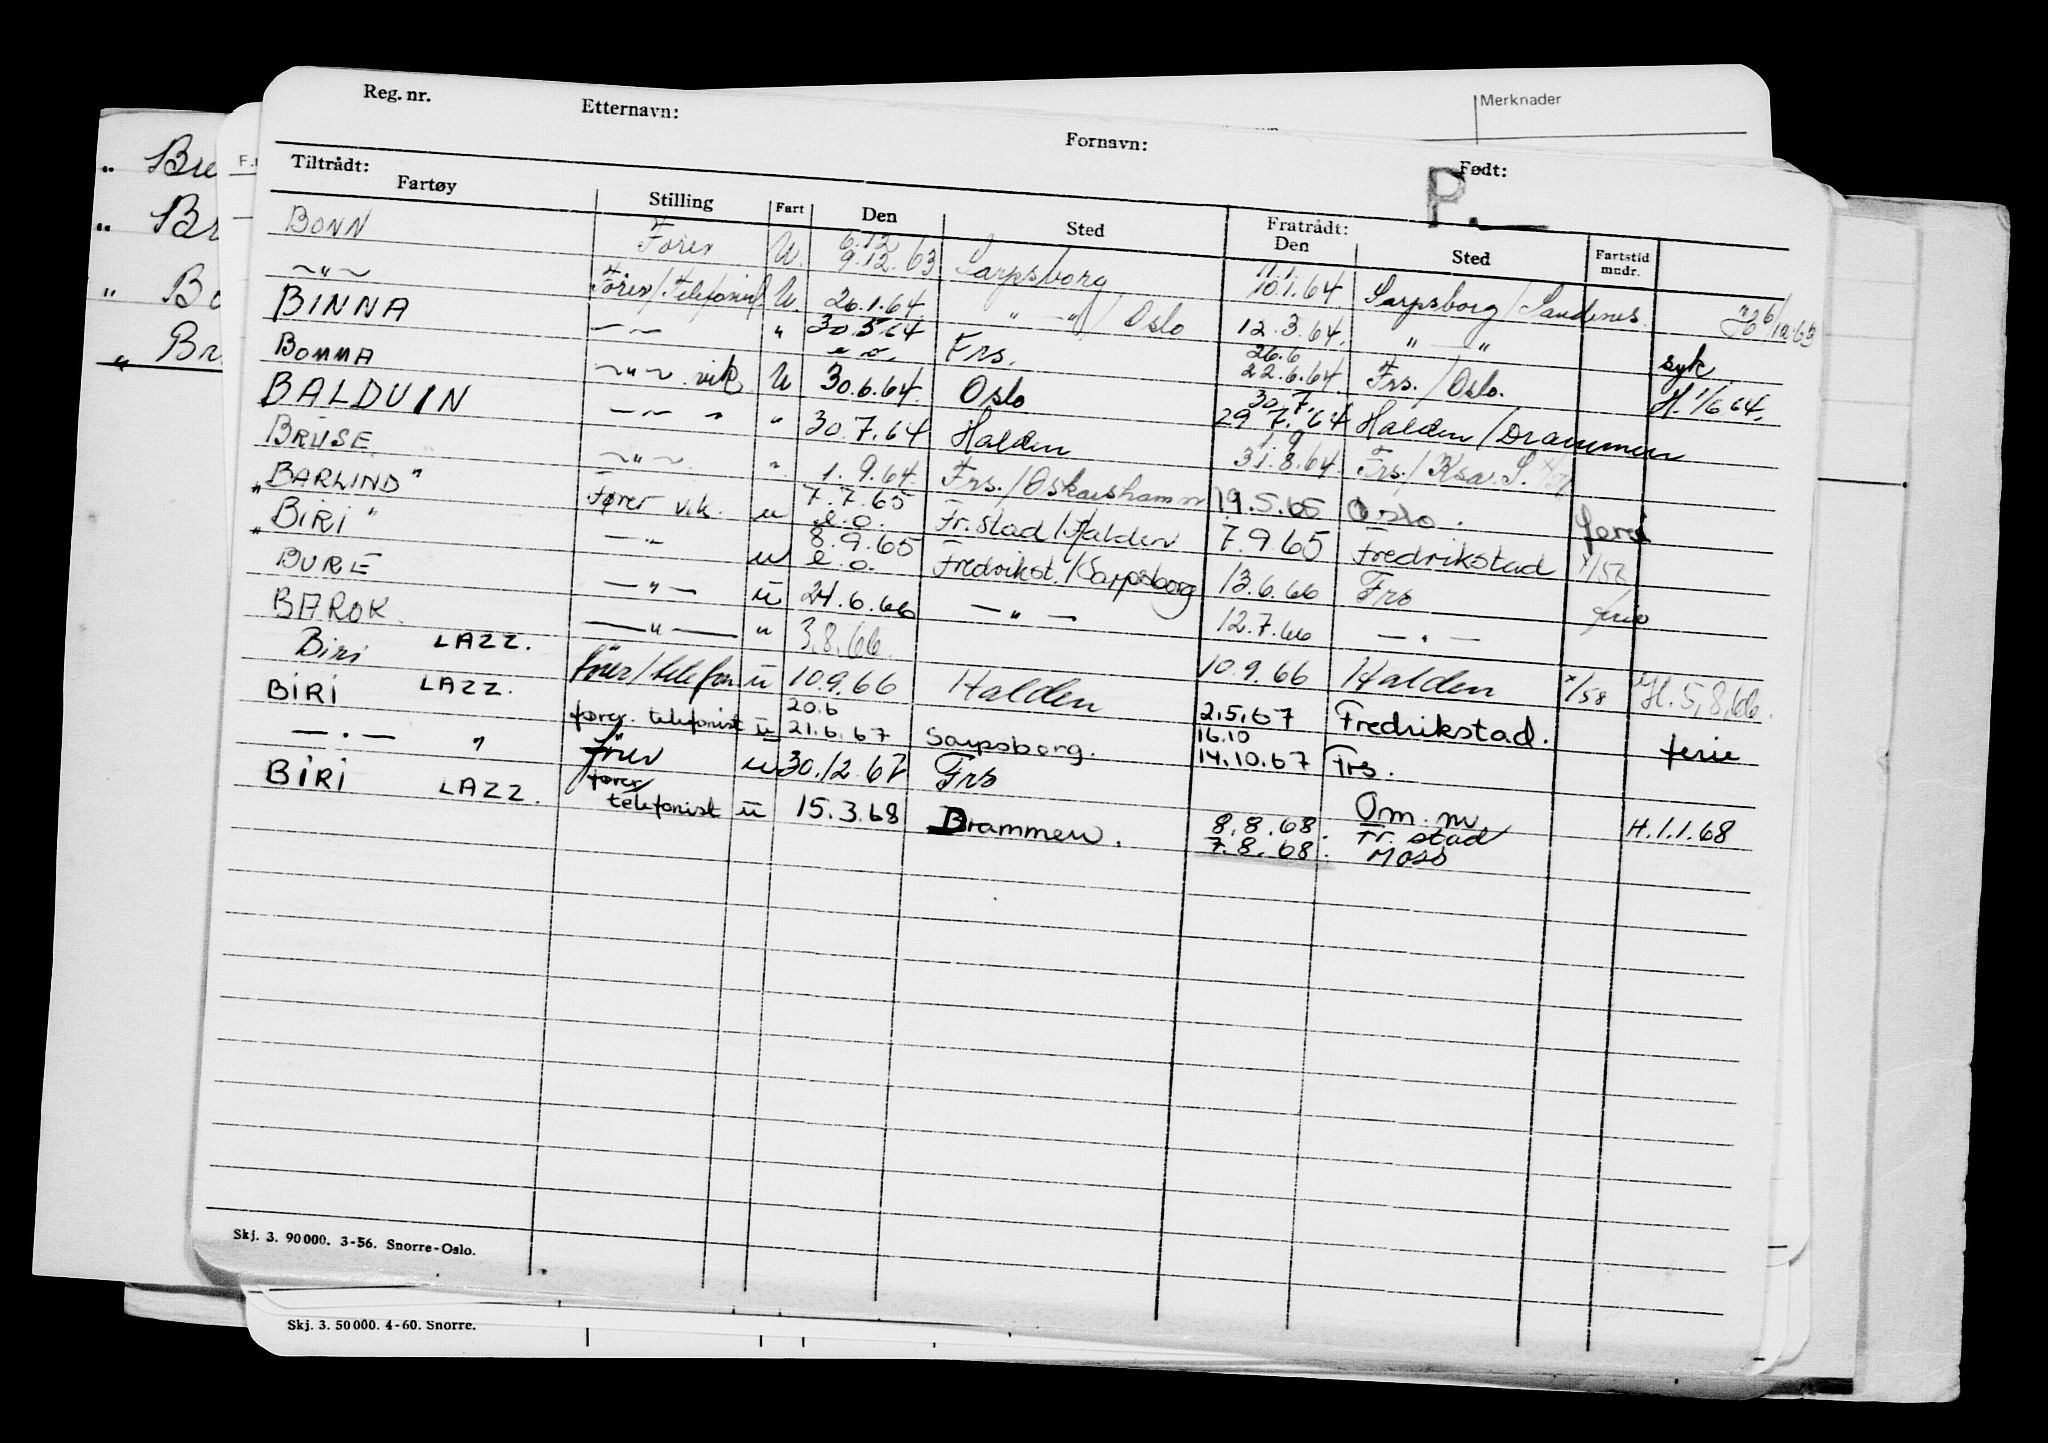 Merknader
Reg. nr. Etternavn: Fornavn: Født:
P.
Tiltrådt: Fratrådt:
Fartøy Stilling Fart Den Sted Den Sted Fartstid mndr.
BONN Fører U. 6.12 9.12.63 Sarpsborg 10.1.64 Sarpsborg/Sandenes 6/12.63
~"~ Fører/Telefonist U. 26.1.64 " " / Oslo 12.3.64. " " syk
BINNA — — " 30.5.64 e.o. Frs. 26.6 22.6.64 Frs./Oslo. H. 1/6 64.
BOMMA ~"~ vik. U 30.6.64. Oslo 30.7. 29 7. 64 Halden/Drammen
BALDUIN — " — " " 30.7.64 Halden 1.9 31.8.64. Frs./Ksa. S.
BRUSE. ~"~ " 1.9.64. Frs./Oskarshamn 19.5.65 Oslo. ferie
" BARLIND " Fører vik. u 7.7.65 e.o. Fr.stad/Halden 7.9.65 Fredrikstad
" BIRI " — " u 8.9.65 e.o. Fredrikst./Sarpsborg 13.6.66 Frs ferie
BURE — " — ū 24.6.66 — " — 12.7.66 — " —
BAROK. — " — " 3.8.66. 10.9.66 Halden x/58 H. 5,8,66.
Biri LAZZ. fører/telefon ū 10.9.66 Halden 2.5.67 Fredrikstad. ferie
BIRI LAZZ. fører. telefonist ū 20.6 21.6.67 Sarpsborg. 16.10 14.10.67 Frs.
— " — " fører u 30.12.67 Frs Om. nu H.1.1.68
BIRI LAZZ. fører telefonist ū 15.3.68 Drammen. 8.8.68. 7.8.68. Fr. stad Moss
Skj. 3. 90000. 3-56. Snorre-Oslo.
Skj. 3. 50000. 4-60. Snorre.